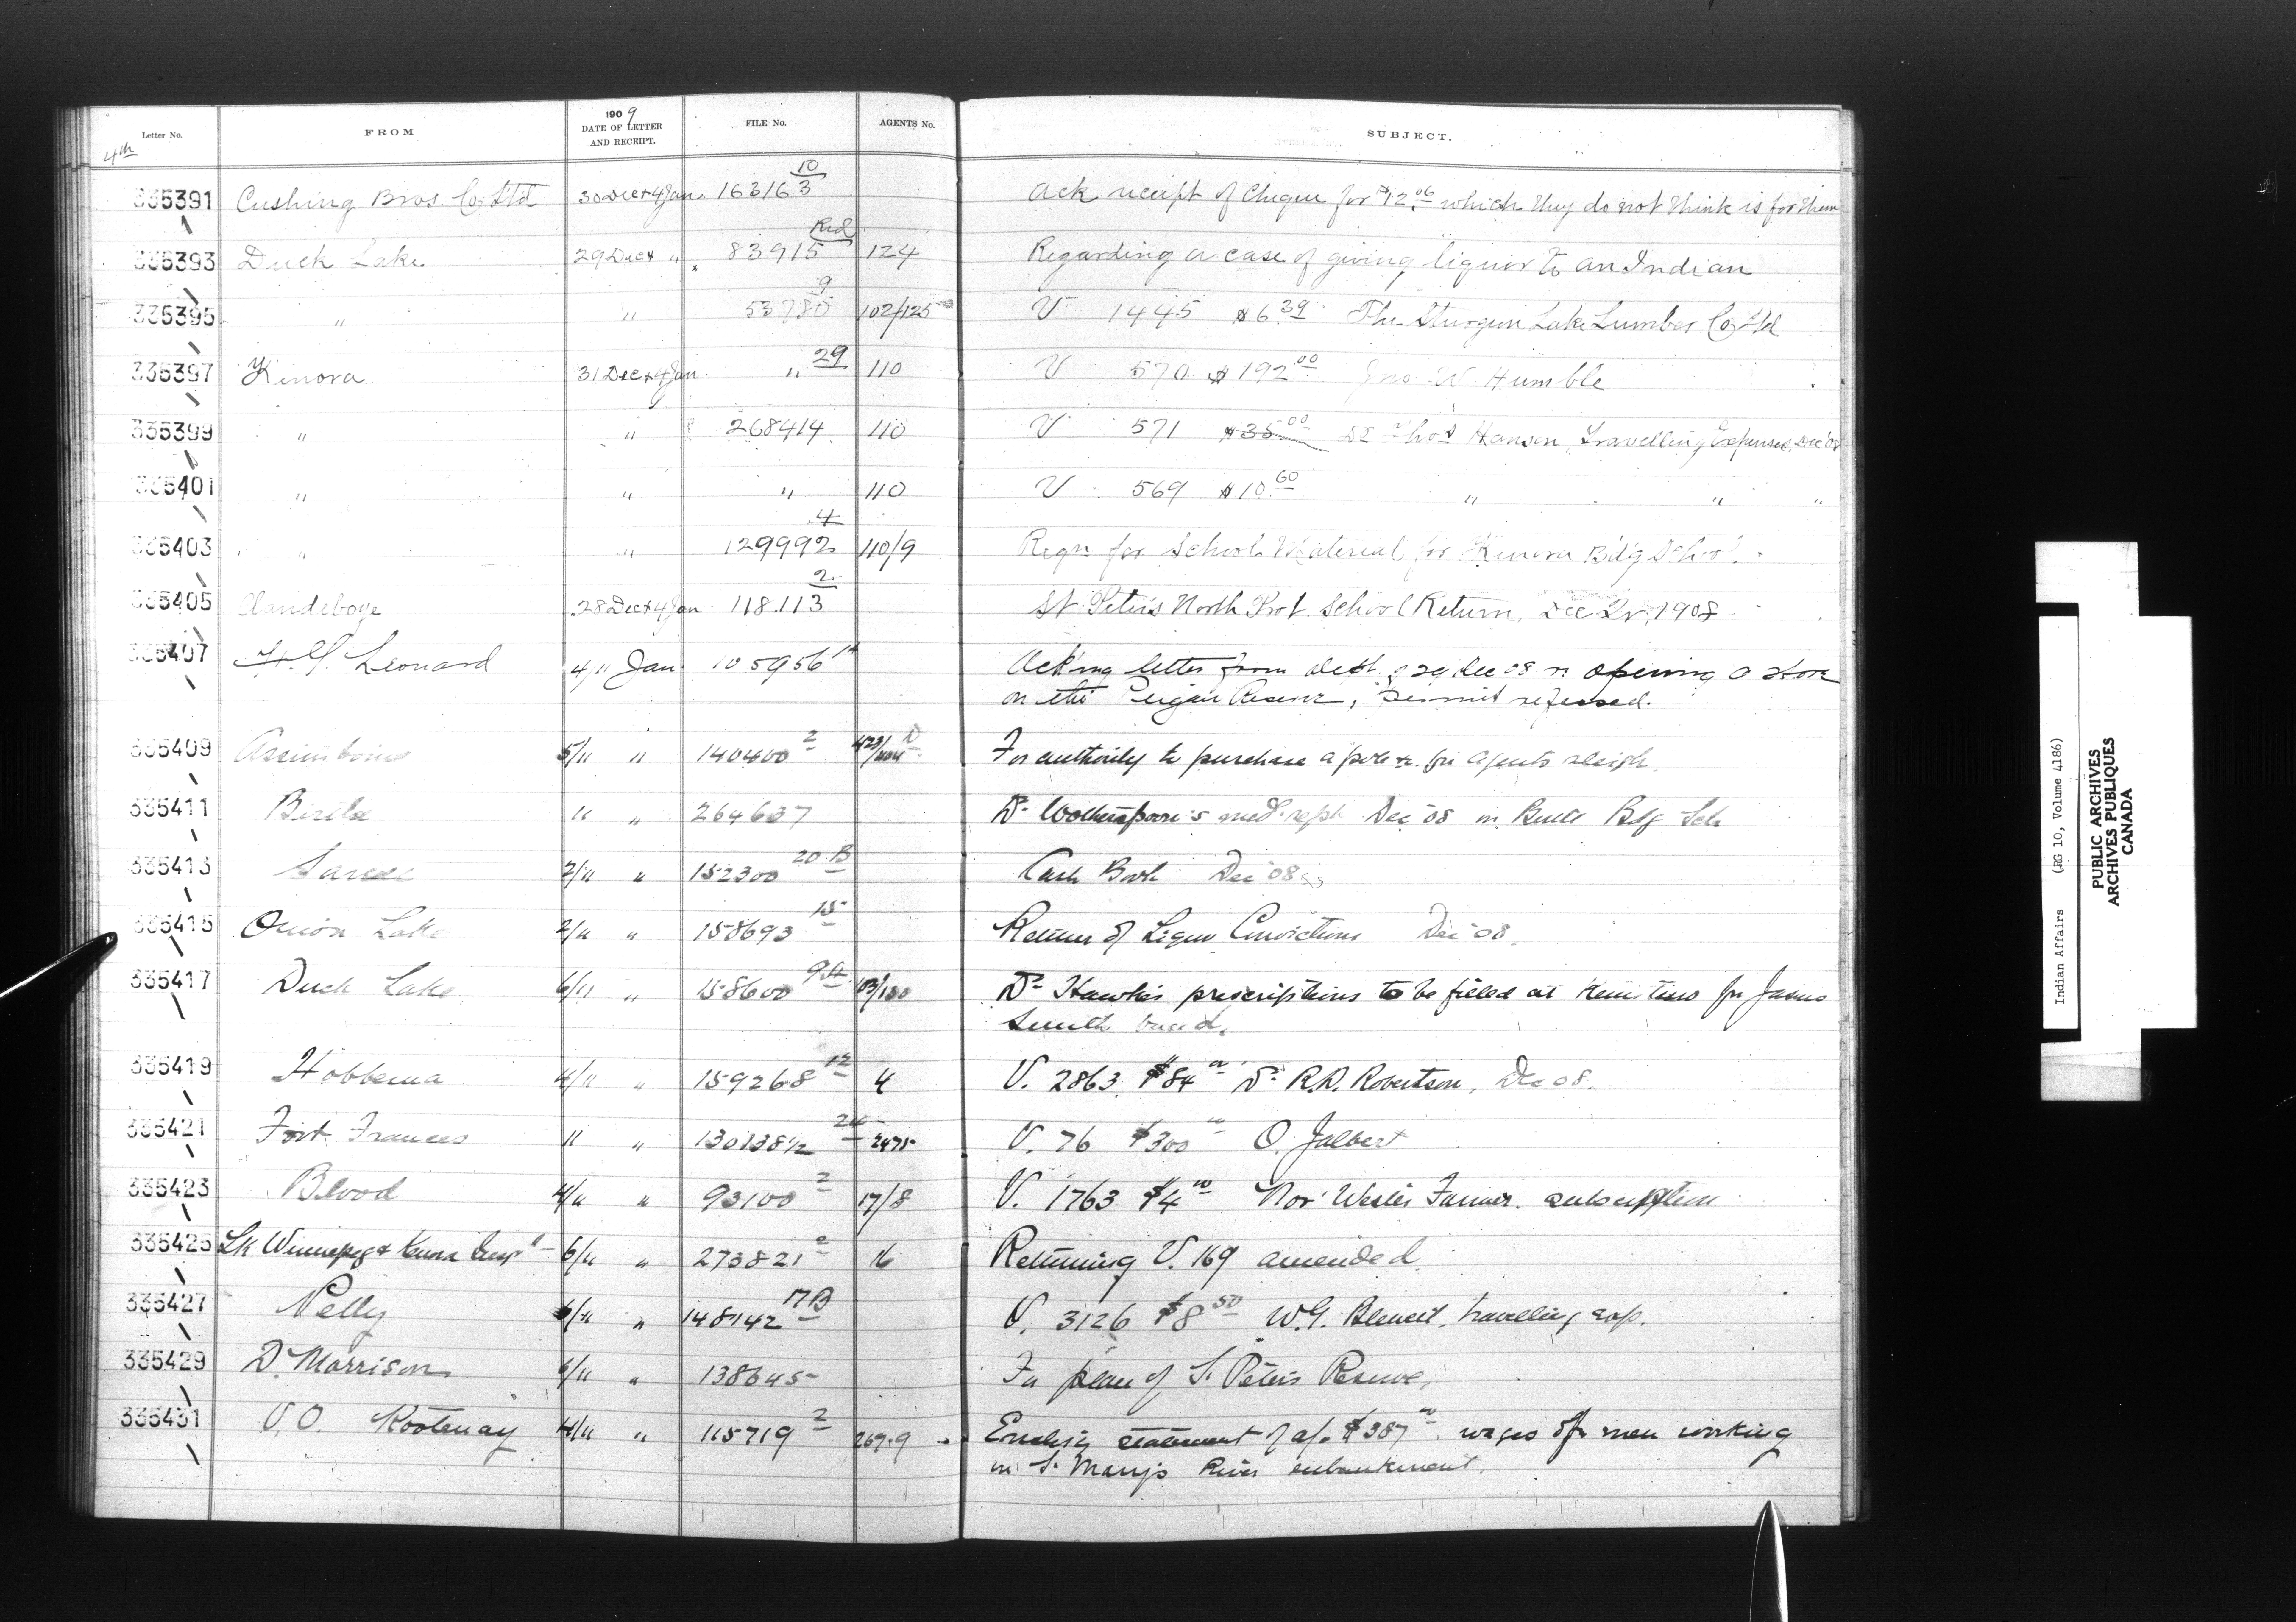 Letter No. FROM 1909 DATE OF LETTER AND RECEIPT. FILE No. AGENTS No. SUBJECT.
4th
335391 Cushing Bros. Co Ltd 30 Dec & 4 Jan. 163163 10 Ack receipt of Cheque for $12.06 which they do not think is for them
335393 Duck Lake 29 Dec & " 83915 Red 124 Regarding a case of giving liquor to an Indian
335395 " " 53780 9 102/125 V 1445 $6.39 The Sturgeon Lake Lumber Co Ltd
335397 Kenora 31 Dec & 4 Jan. " 29 110 V 570 $192.00 Jno W Humble
335399 " " 268414 110 V 571 $35.00 Dr Thos Hanson, Travelling Expenses, Dec '08
335401 " " " 110 V 569 $10.60 " " "
335403 " " 129992 4 110/9 Reqn for School Material for Kenora Bdg School.
335405 Clandeboye 28 Dec & 4 Jan 118113 2 St Peters North Prot. School Return, Dec Qr, 1908
335407 Leonard 4/11 Jan 105956 Ack'ng letter from Dept of 29 Dec 08 re opening a store
on the Peigan Reserve, permit refused.
335409 Assiniboine 5/" " 140400 2 For authority to purchase a pole for Agents sleigh.
335411 Birtle " " 264637 Dr Wotherspoon's med. rept Dec '08 Bdg Sch
335413 Sarcee 2/" " 152300 20 B Cash Book Dec '08
335415 Onion Lake 2/" " 158693 15 Return of Liquor Convictions Dec '08.
335417 Duck Lake 6/" " 158600 103/130 Dr prescriptions to be filled at Kinistino for James
Smith band.
335419 Hobbema 4/" " 159268 12 4 V. 2863 $84.00 Dr R.D. Robertson, Dec 08.
335421 Fort Frances " " 130138½ 2475 V. 76 $300.00 O. Jalbert
335423 Blood 4/" " 93100 2 17/8 V. 1763 $4.00 Nor' Wester Farmer. subscription
335425 Lk Winnipeg & Kenora 6/" " 273821 2 16 Returning V. 169 amended.
335427 Pelly 6/" " 148142 17 B V. 3126 $8.50 W.G. travelling exp.
335429 D. Morrison 6/" " 138645 For plan of St Peters Reserve.
335431 V.O. Kootenay 4/" " 115719 2 269.9 Enclosing statement of a/c $387.00 wages of men working
on St Mary's River embankment.
Indian Affairs (RG 10, Volume 4186)
PUBLIC ARCHIVES
ARCHIVES PUBLIQUES
CANADA